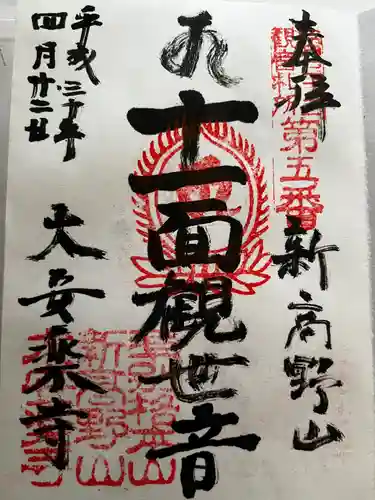 奉拝
第五番
新高野山
十一面観世音
大安楽寺
平成三十年
四月廿二廿
新高野山